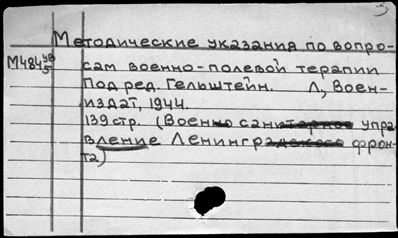 Методические указания по вопро-
М484 ув/5 сам военно-полевой терапии
Под ред. Гельштейн. Л, Воен-
издат, 1944.
139 стр. (Военно санитарное упра-
вление Ленинградского фрон-
та)